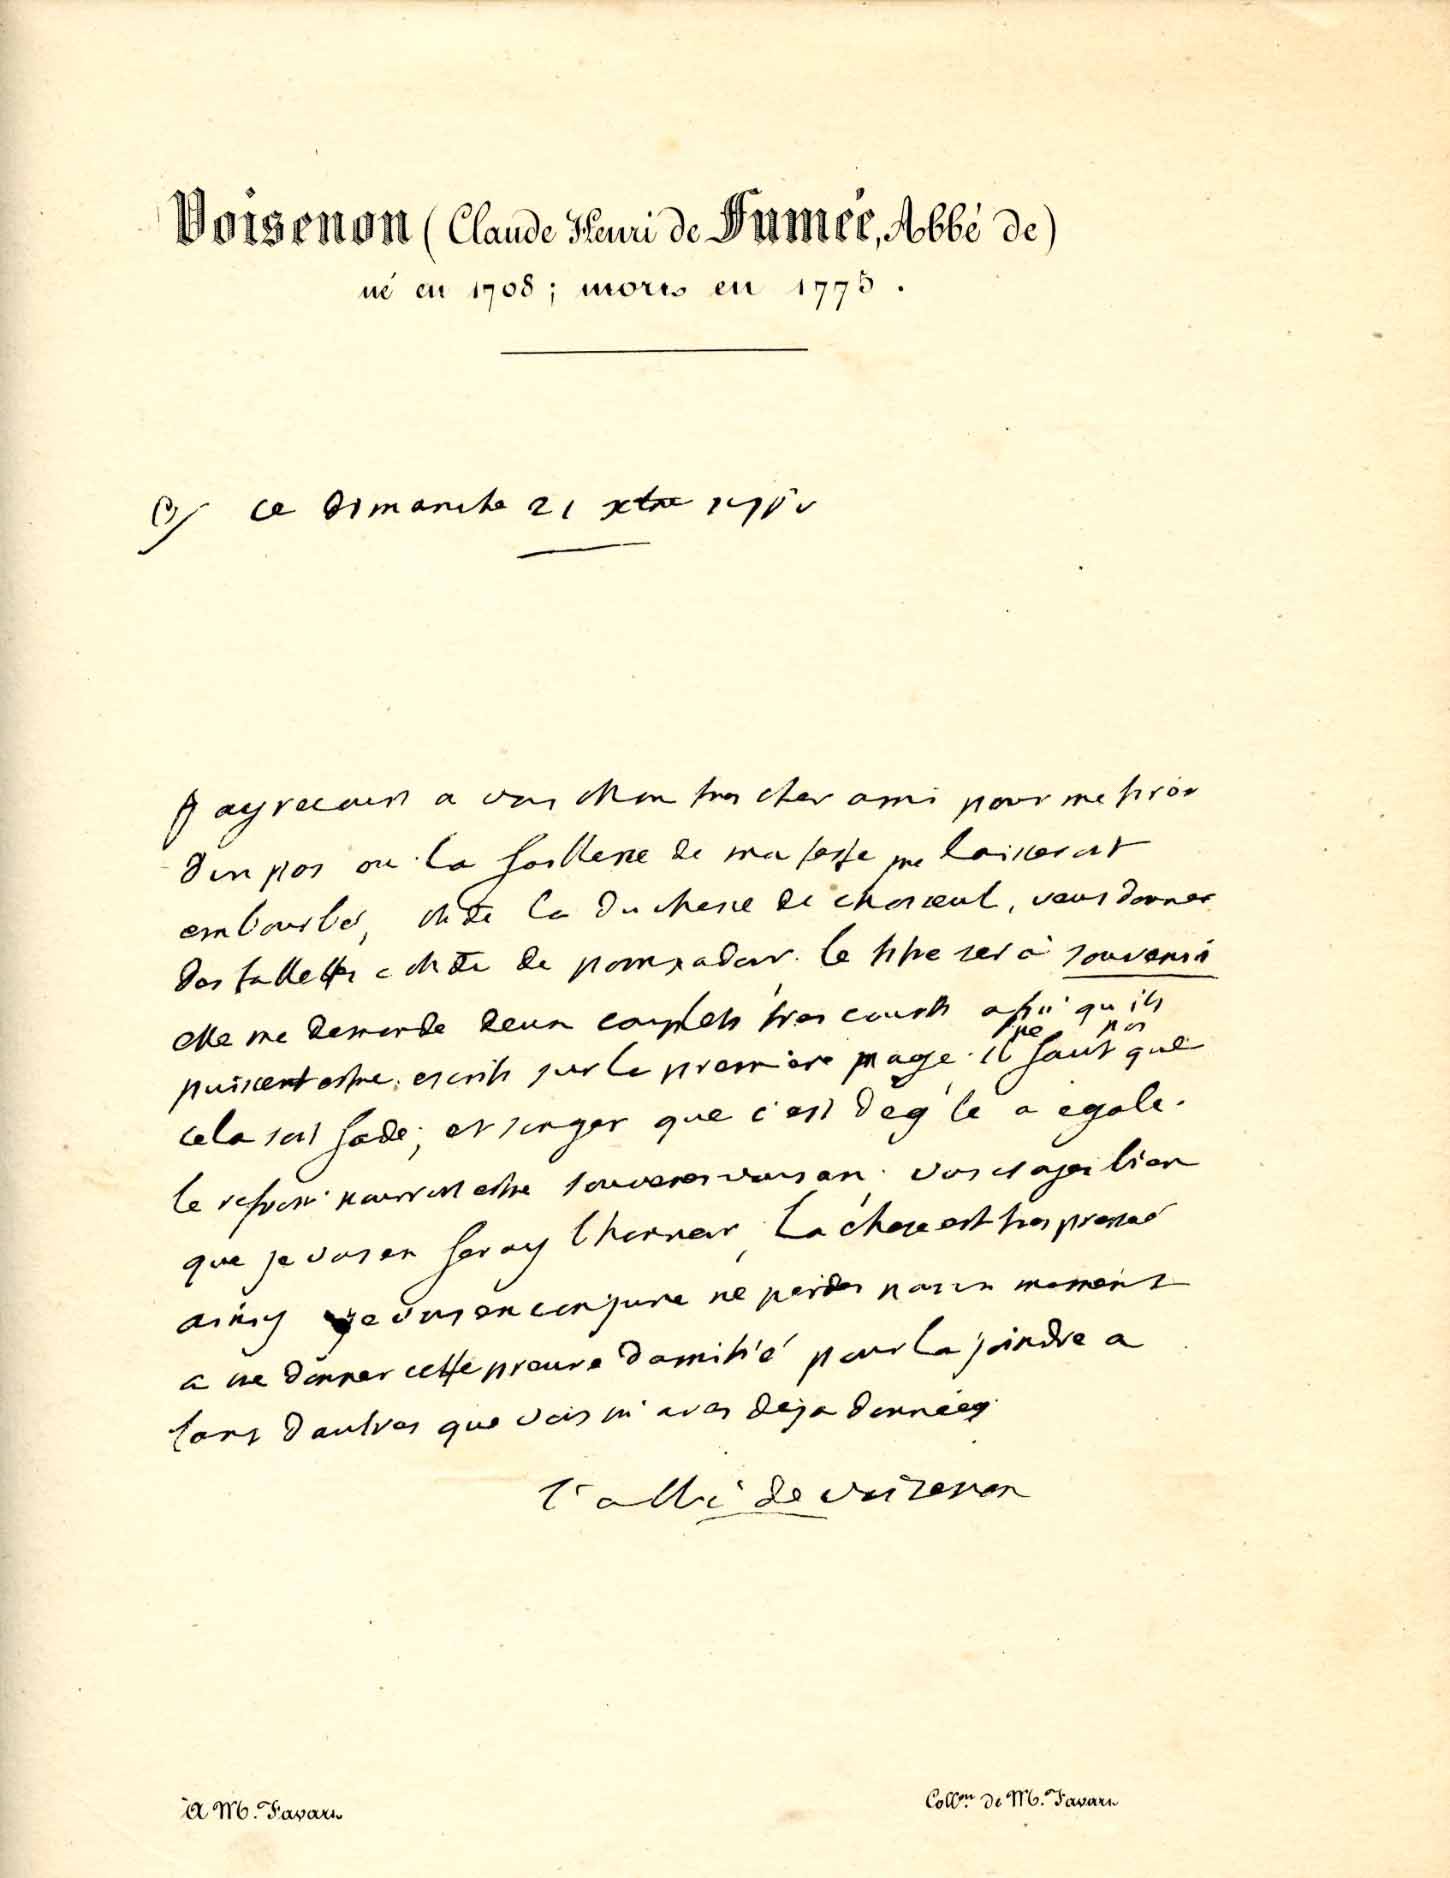 Voisenon (Claude Henri de Fumée, Abbé de)
né en 1708; mort en 1775.
ce dimanche 21 xbre
j'ay recours a vous mon tres cher ami pour me tirer
d'un pas ou la foiblesse de ma teste me laisseroit
embourbé, Mde la duchesse de choiseul, veut donner
des tablettes a Mde de pompadour. le titre sera souvenir
elle me demande deux couplets tres courts afin qu'ils
puissent estre escrits sur la premiere page. il ne faut pas que
cela soit fade, et songer que c'est d'egale a egale.
le refrein pourroit estre souvenes vous en. vous croyes bien
que je vous en feray l'honneur, la chose est tres pressée
ainsy je vous en conjure ne perdes pas un moment
a me donner cette preuve d'amitié pour la joindre a
tant d'autres que vous m'aves deja données
l'abbé de voisenon
A M. Favart
Collon. de M. Favart